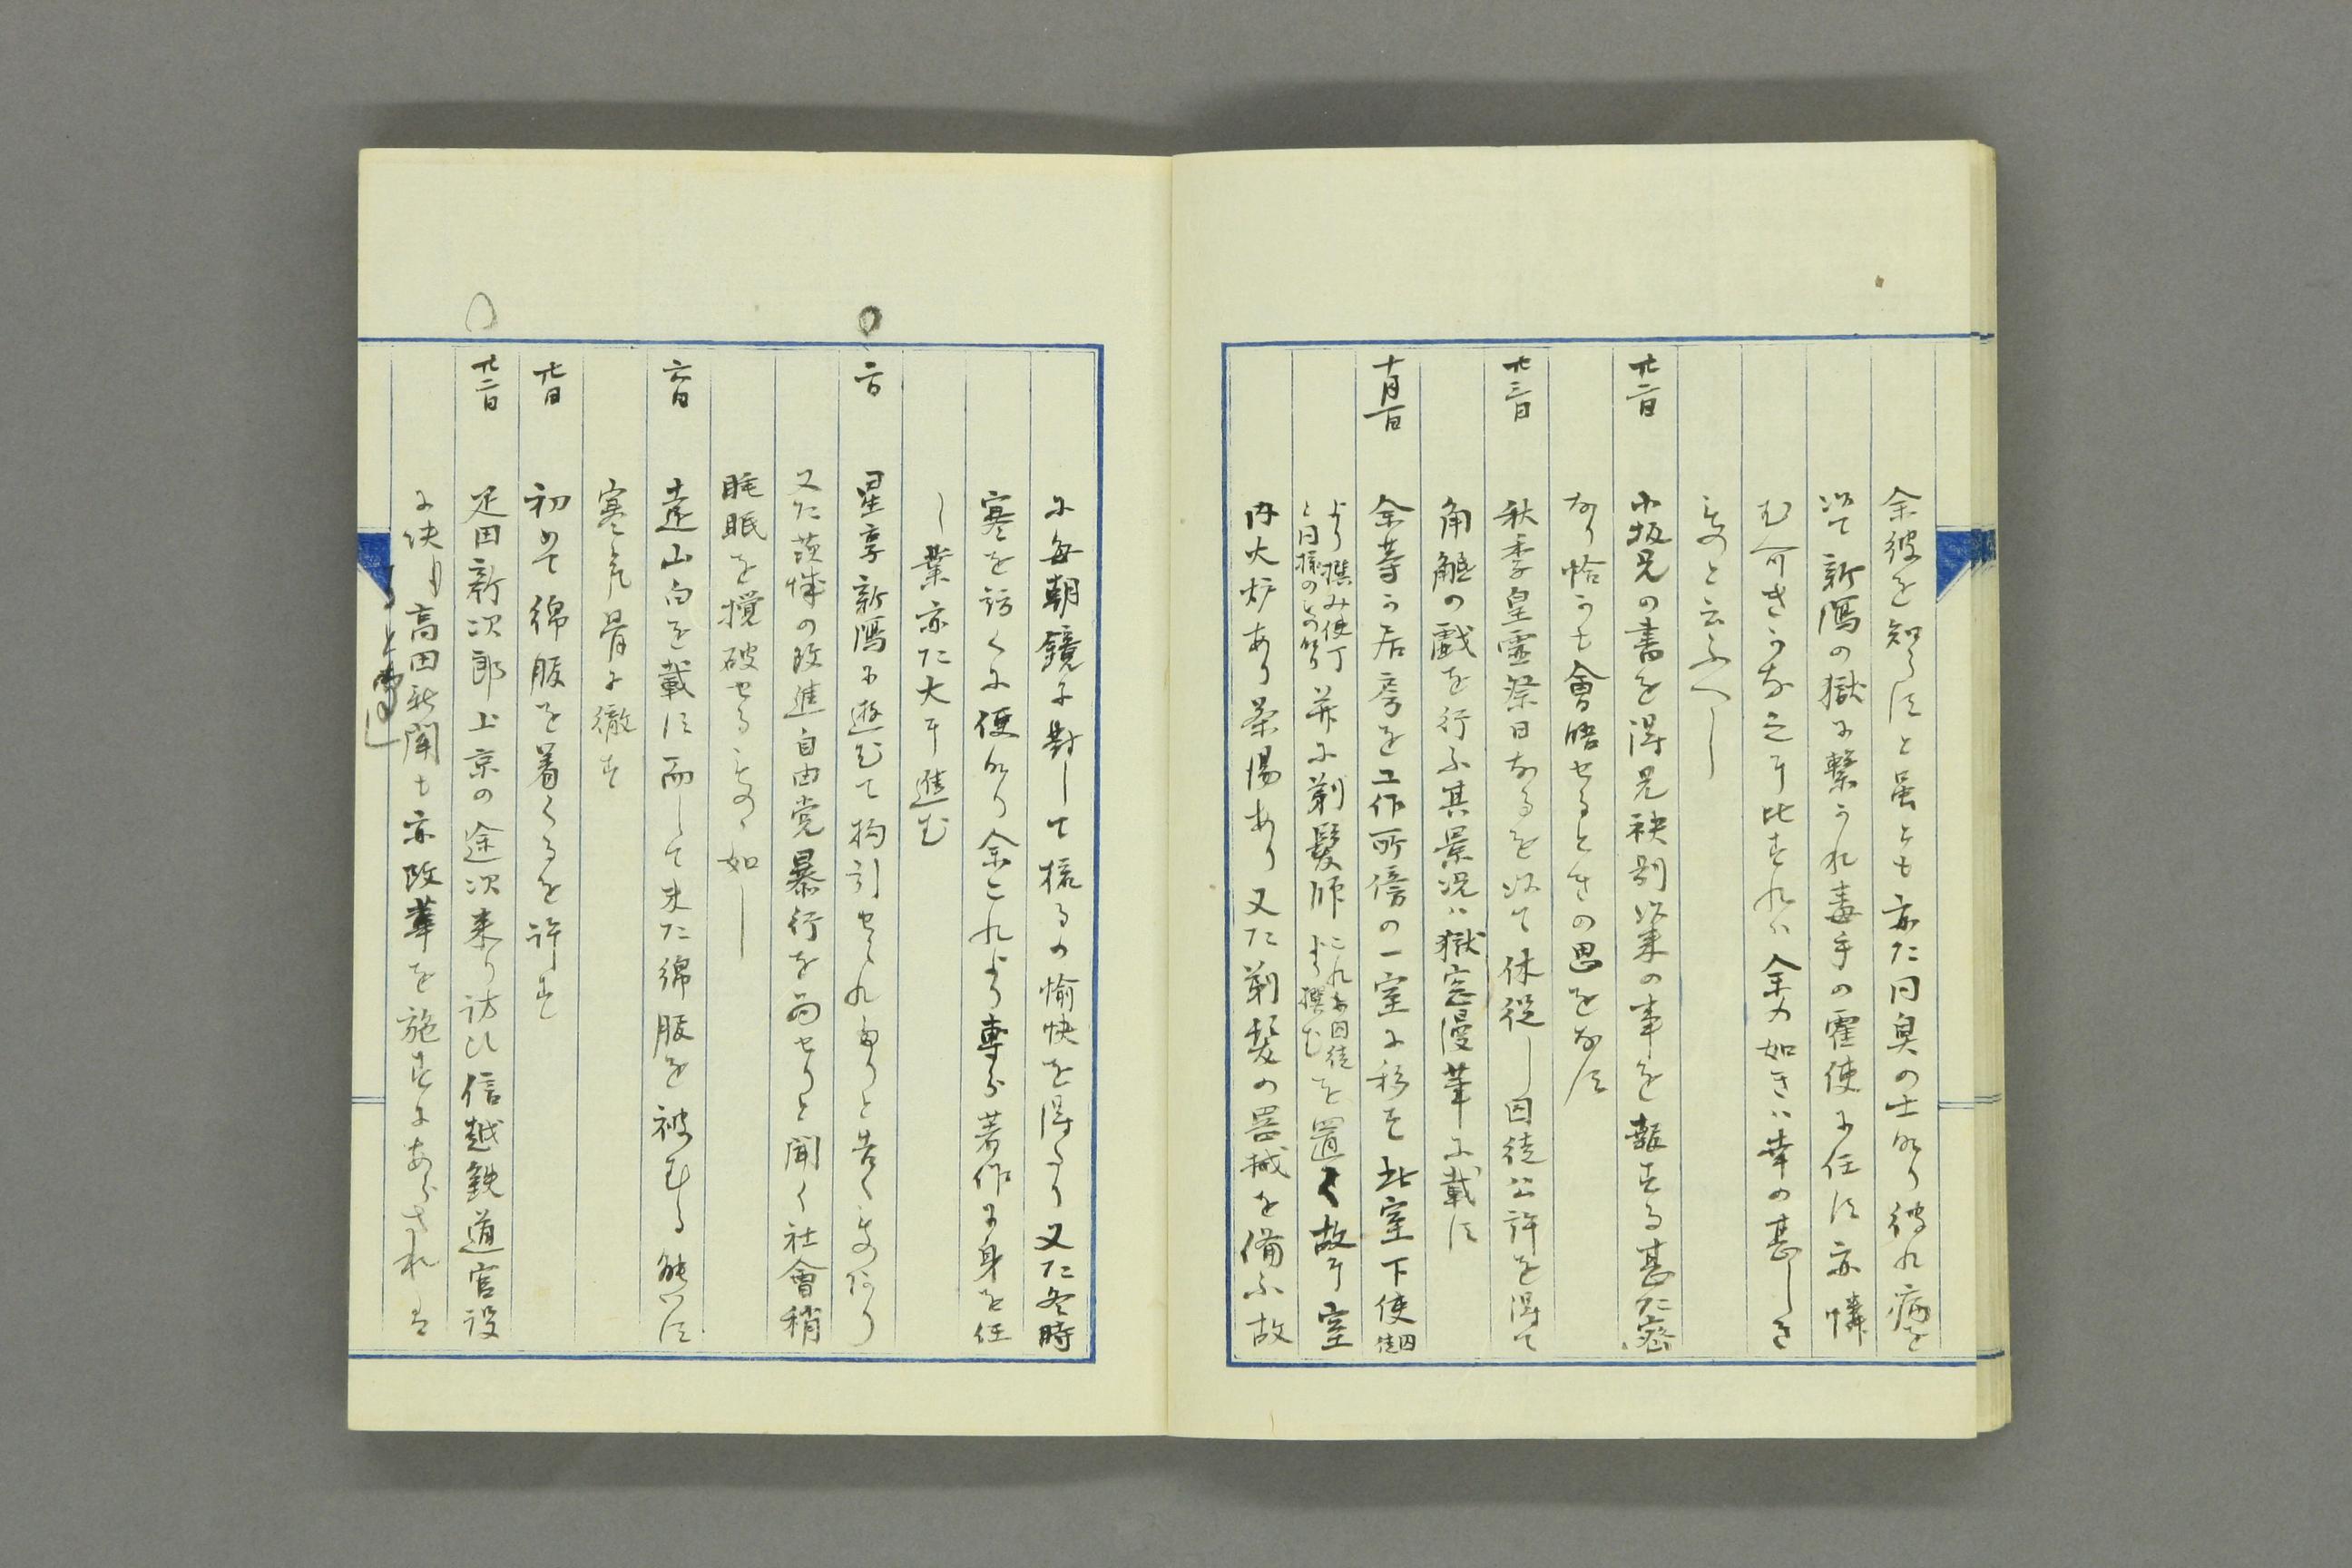 余彼を知らすと雖とも亦た同臭の士なり彼れ病を
以て新潟の獄に繋かれ毒手の霍使に任す亦憐
む可きかな之に比すれハ余の如きハ幸の甚しき
ものと云ふへし
廿二日 小坂兄の書を得兄袂別以来の事を報する甚た密
なり恰かも會晤せるときの思をなす
廿三日 秋季皇霊祭日なるを以て休役し囚徒公許を得て
角觝の戯を行ふ其景况ハ獄窓漫筆に載す
十月一日 余等の居房を工作所傍の一室に移す此室下使囚徒
より撰み使丁と同様のものなり并に剃髪師これ亦囚徒より撰むを置く故に室
内火炉あり茶湯あり又た剃髪の器械を備ふ故
に毎朝鏡に對して梳るの愉快を得たり又た冬時
寒を防くに便なり余これより専ら著作に身を任
し業亦た大に進む
二日 星亨新潟に遊むて拘引せられたりと告くものあり
又た茨城の改進自由党暴行を為せりと聞く社會稍
眠を攪破せるものゝ如し
六日 遠山白を載す而して未た綿服を被むる能はす
寒気骨に徹す
廿日 初めて綿服を着くるを許す
廿二日 疋田新次郎上京の途次来り訪ひ信越鉄道官設
に决し高田新聞も亦改革を施すにあらされは